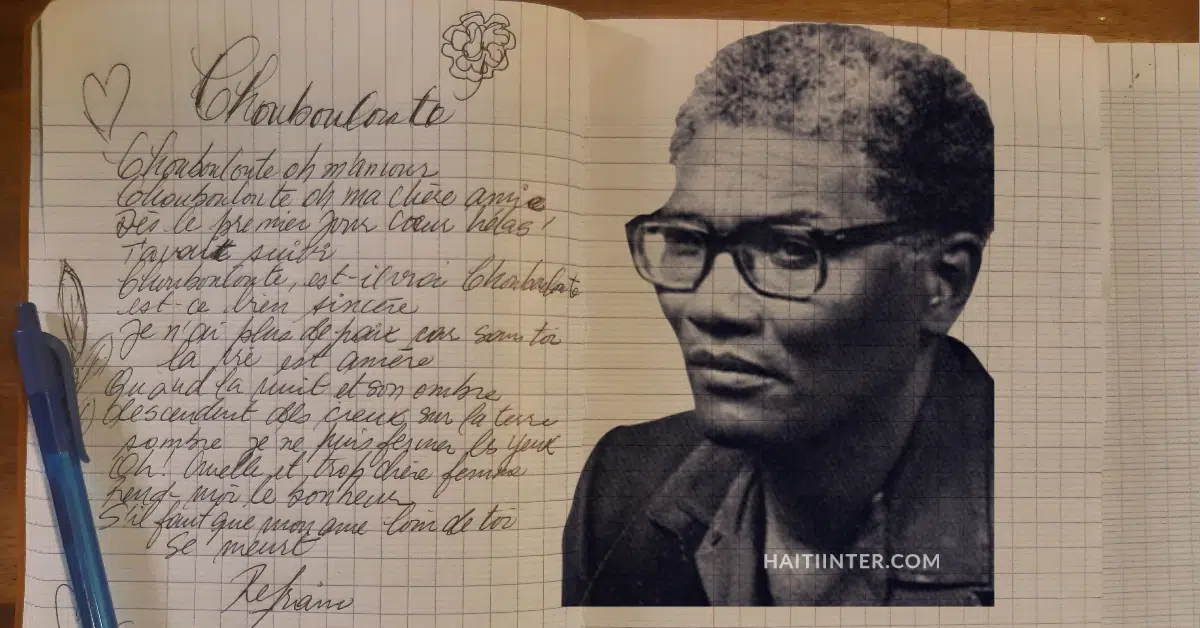 Chouboulonte
Chouboulonte oh m'amour
Chouboulonte oh ma chère amie
Dès le premier jour cœur hélas!
T'avait suivi
Chouboulonte, est-il vrai Chouboulonte
est-ce bien sincère
Je n'ai plus de paix car sans toi
la vie est amère
Quand la nuit et son ombre
descendent des cieux sur la terre
sombre je ne puis fermer les yeux
Oh! Cruelle et trop chère femme
Rend-moi le bonheur
S'il faut que mon ame loin de toi
Se meurt
Refrain
HAITIINTER.COM